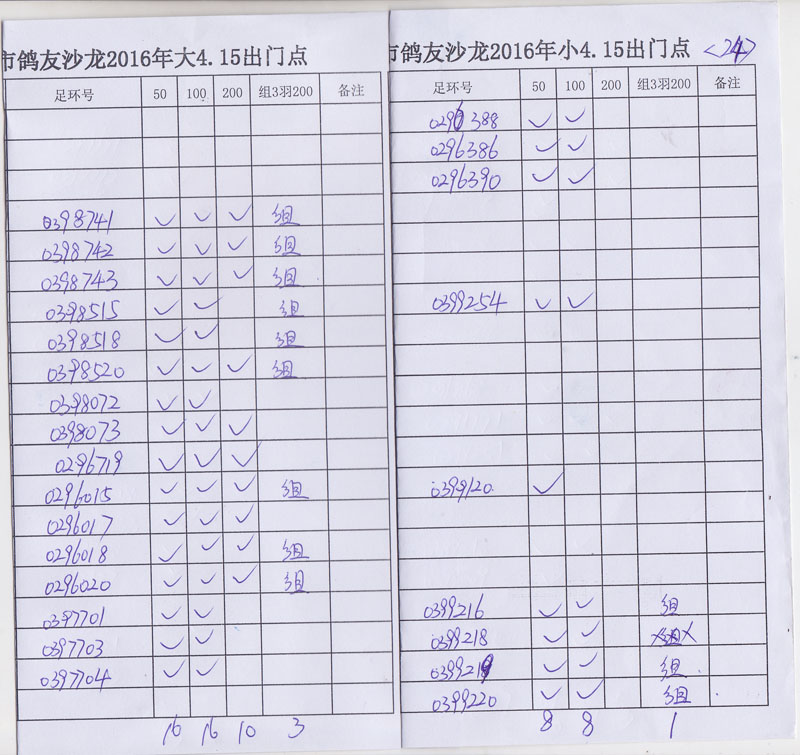 市鸽友沙龙2016年大4.15出门点
足环号 50 100 200 组3羽200 备注
0398741 ✓ ✓ ✓ 组
0398742 ✓ ✓ ✓ 组
0398743 ✓ ✓ ✓ 组
0398515 ✓ ✓ 组
0398518 ✓ ✓ 组
0398520 ✓ ✓ ✓ 组
0398072 ✓ ✓
0398073 ✓ ✓ ✓
0296719 ✓ ✓ ✓
0296015 ✓ ✓ ✓ 组
0296017 ✓ ✓ ✓
0296018 ✓ ✓ ✓ 组
0296020 ✓ ✓ ✓ 组
0397701 ✓ ✓
0397703 ✓ ✓
0397704 ✓ ✓
16 16 10 3
市鸽友沙龙2016年小4.15出门点 <24>
足环号 50 100 200 组3羽200 备注
0296388 ✓ ✓
0296386 ✓ ✓
0296390 ✓ ✓
0399254 ✓ ✓
0399120 ✓
0399216 ✓ ✓ 组
0399218 ✓ ✓
0399219 ✓ ✓ 组
0399220 ✓ ✓ 组
8 8 1